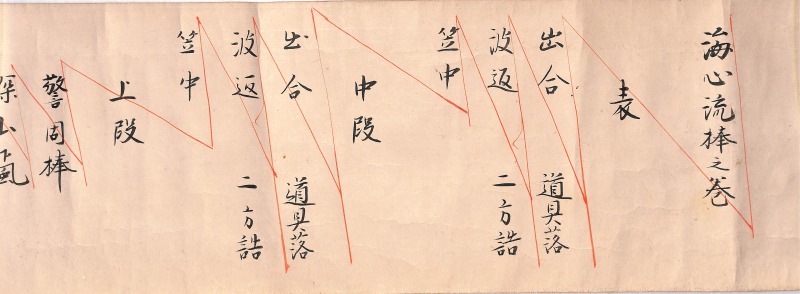 海心流棒之巻
表
出合 道具落
波返 二方詰
笠中
中段
出合 道具落
波返 二方詰
笠中
上段
警固棒
深山颪